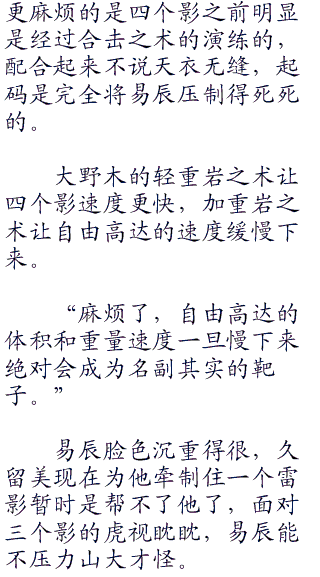 更麻烦的是四个影之前明显
是经过合击之术的演练的，
配合起来不说天衣无缝，起
码是完全将易辰压制得死死
的。
大野木的轻重岩之术让
四个影速度更快，加重岩之
术让自由高达的速度缓慢下
来。
“麻烦了，自由高达的
体积和重量速度一旦慢下来
绝对会成为名副其实的靶
子。”
易辰脸色沉重得很，久
留美现在为他牵制住一个雷
影暂时是帮不了他了，面对
三个影的虎视眈眈，易辰能
不压力山大才怪。